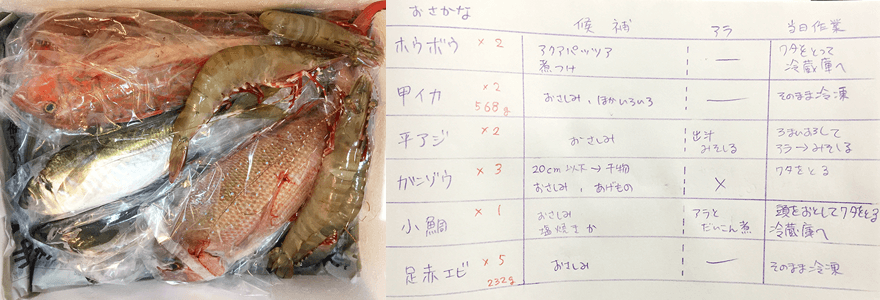 おさかな
候補 アラ 当日作業
ホウボウ ×2 アクアパッツア
煮つけ ー ワタをとって
冷蔵庫へ
甲イカ ×2
568g おさしみ、ほかいろいろ ー そのまま冷凍
平アジ ×2 おさしみ 出汁
みそしる 3まいおろして
アラ→みそしる
ガンゾウ ×3 20cm以下→干物
おさしみ、あげもの × ワタをとる
小鯛 ×1 おさしみ
塩焼きか アラと
だいこん煮 頭をおとしてワタをとる
冷蔵庫へ
足赤エビ ×5
232g おさしみ ー そのまま冷凍